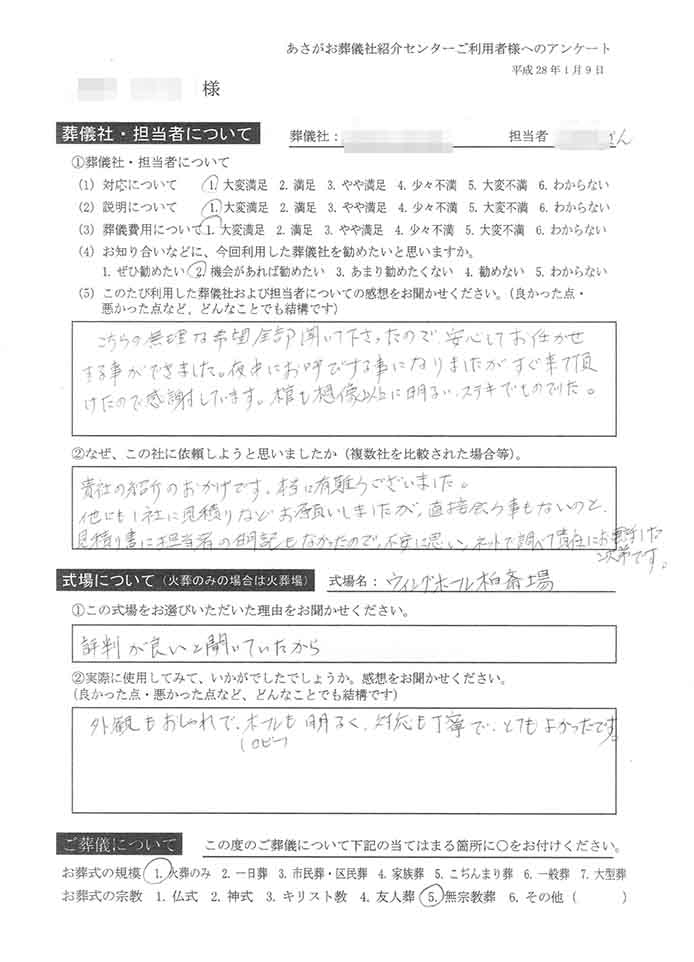 あさがお葬儀社紹介センターご利用者様へのアンケート
平成28年1月9日
様
葬儀社・担当者について 葬儀社： 担当者 さん
①葬儀社・担当者について
(1) 対応について 1. 大変満足 2. 満足 3. やや満足 4. 少々不満 5. 大変不満 6. わからない
(2) 説明について 1. 大変満足 2. 満足 3. やや満足 4. 少々不満 5. 大変不満 6. わからない
(3) 葬儀費用について 1. 大変満足 2. 満足 3. やや満足 4. 少々不満 5. 大変不満 6. わからない
(4) お知り合いなどに、今回利用した葬儀社を勧めたいと思いますか。
1. ぜひ勧めたい 2. 機会があれば勧めたい 3. あまり勧めたくない 4. 勧めない 5. わからない
(5) このたび利用した葬儀社および担当者についての感想をお聞かせください。（良かった点・
悪かった点など、どんなことでも結構です）
こちらの無理な希望全部聞いて下さったので、安心してお任せ
する事ができました。夜中にお呼びする事になりましたがすぐ来て頂
けたので感謝しています。棺も想像以上に明るい、ステキでものでした。
②なぜ、この社に依頼しようと思いましたか（複数社を比較された場合等）。
貴社の紹介のおかげです。本当に有難うございました。
他にも1社に見積りなどお願いしましたが、直接会う事もないのと、
見積り書に担当者の明記もなかったので、不安に思い、ネットで調べて貴社にお電話した
次第です。
式場について（火葬のみの場合は火葬場） 式場名： ウィングホール柏斎場
①この式場をお選びいただいた理由をお聞かせください。
評判が良いと聞いていたから
②実際に使用してみて、いかがでしたでしょうか。感想をお聞かせください。
（良かった点・悪かった点など、どんなことでも結構です）
外観もおしゃれで、ホールも明るく、対応も丁寧で、とてもよかったです。
（ロビー）
ご葬儀について この度のご葬儀について下記の当てはまる箇所に〇をお付けください。
お葬式の規模 1. 火葬のみ 2. 一日葬 3. 市民葬・区民葬 4. 家族葬 5. こぢんまり葬 6. 一般葬 7. 大型葬
お葬式の宗教 1. 仏式 2. 神式 3. キリスト教 4. 友人葬 5. 無宗教葬 6. その他（ ）